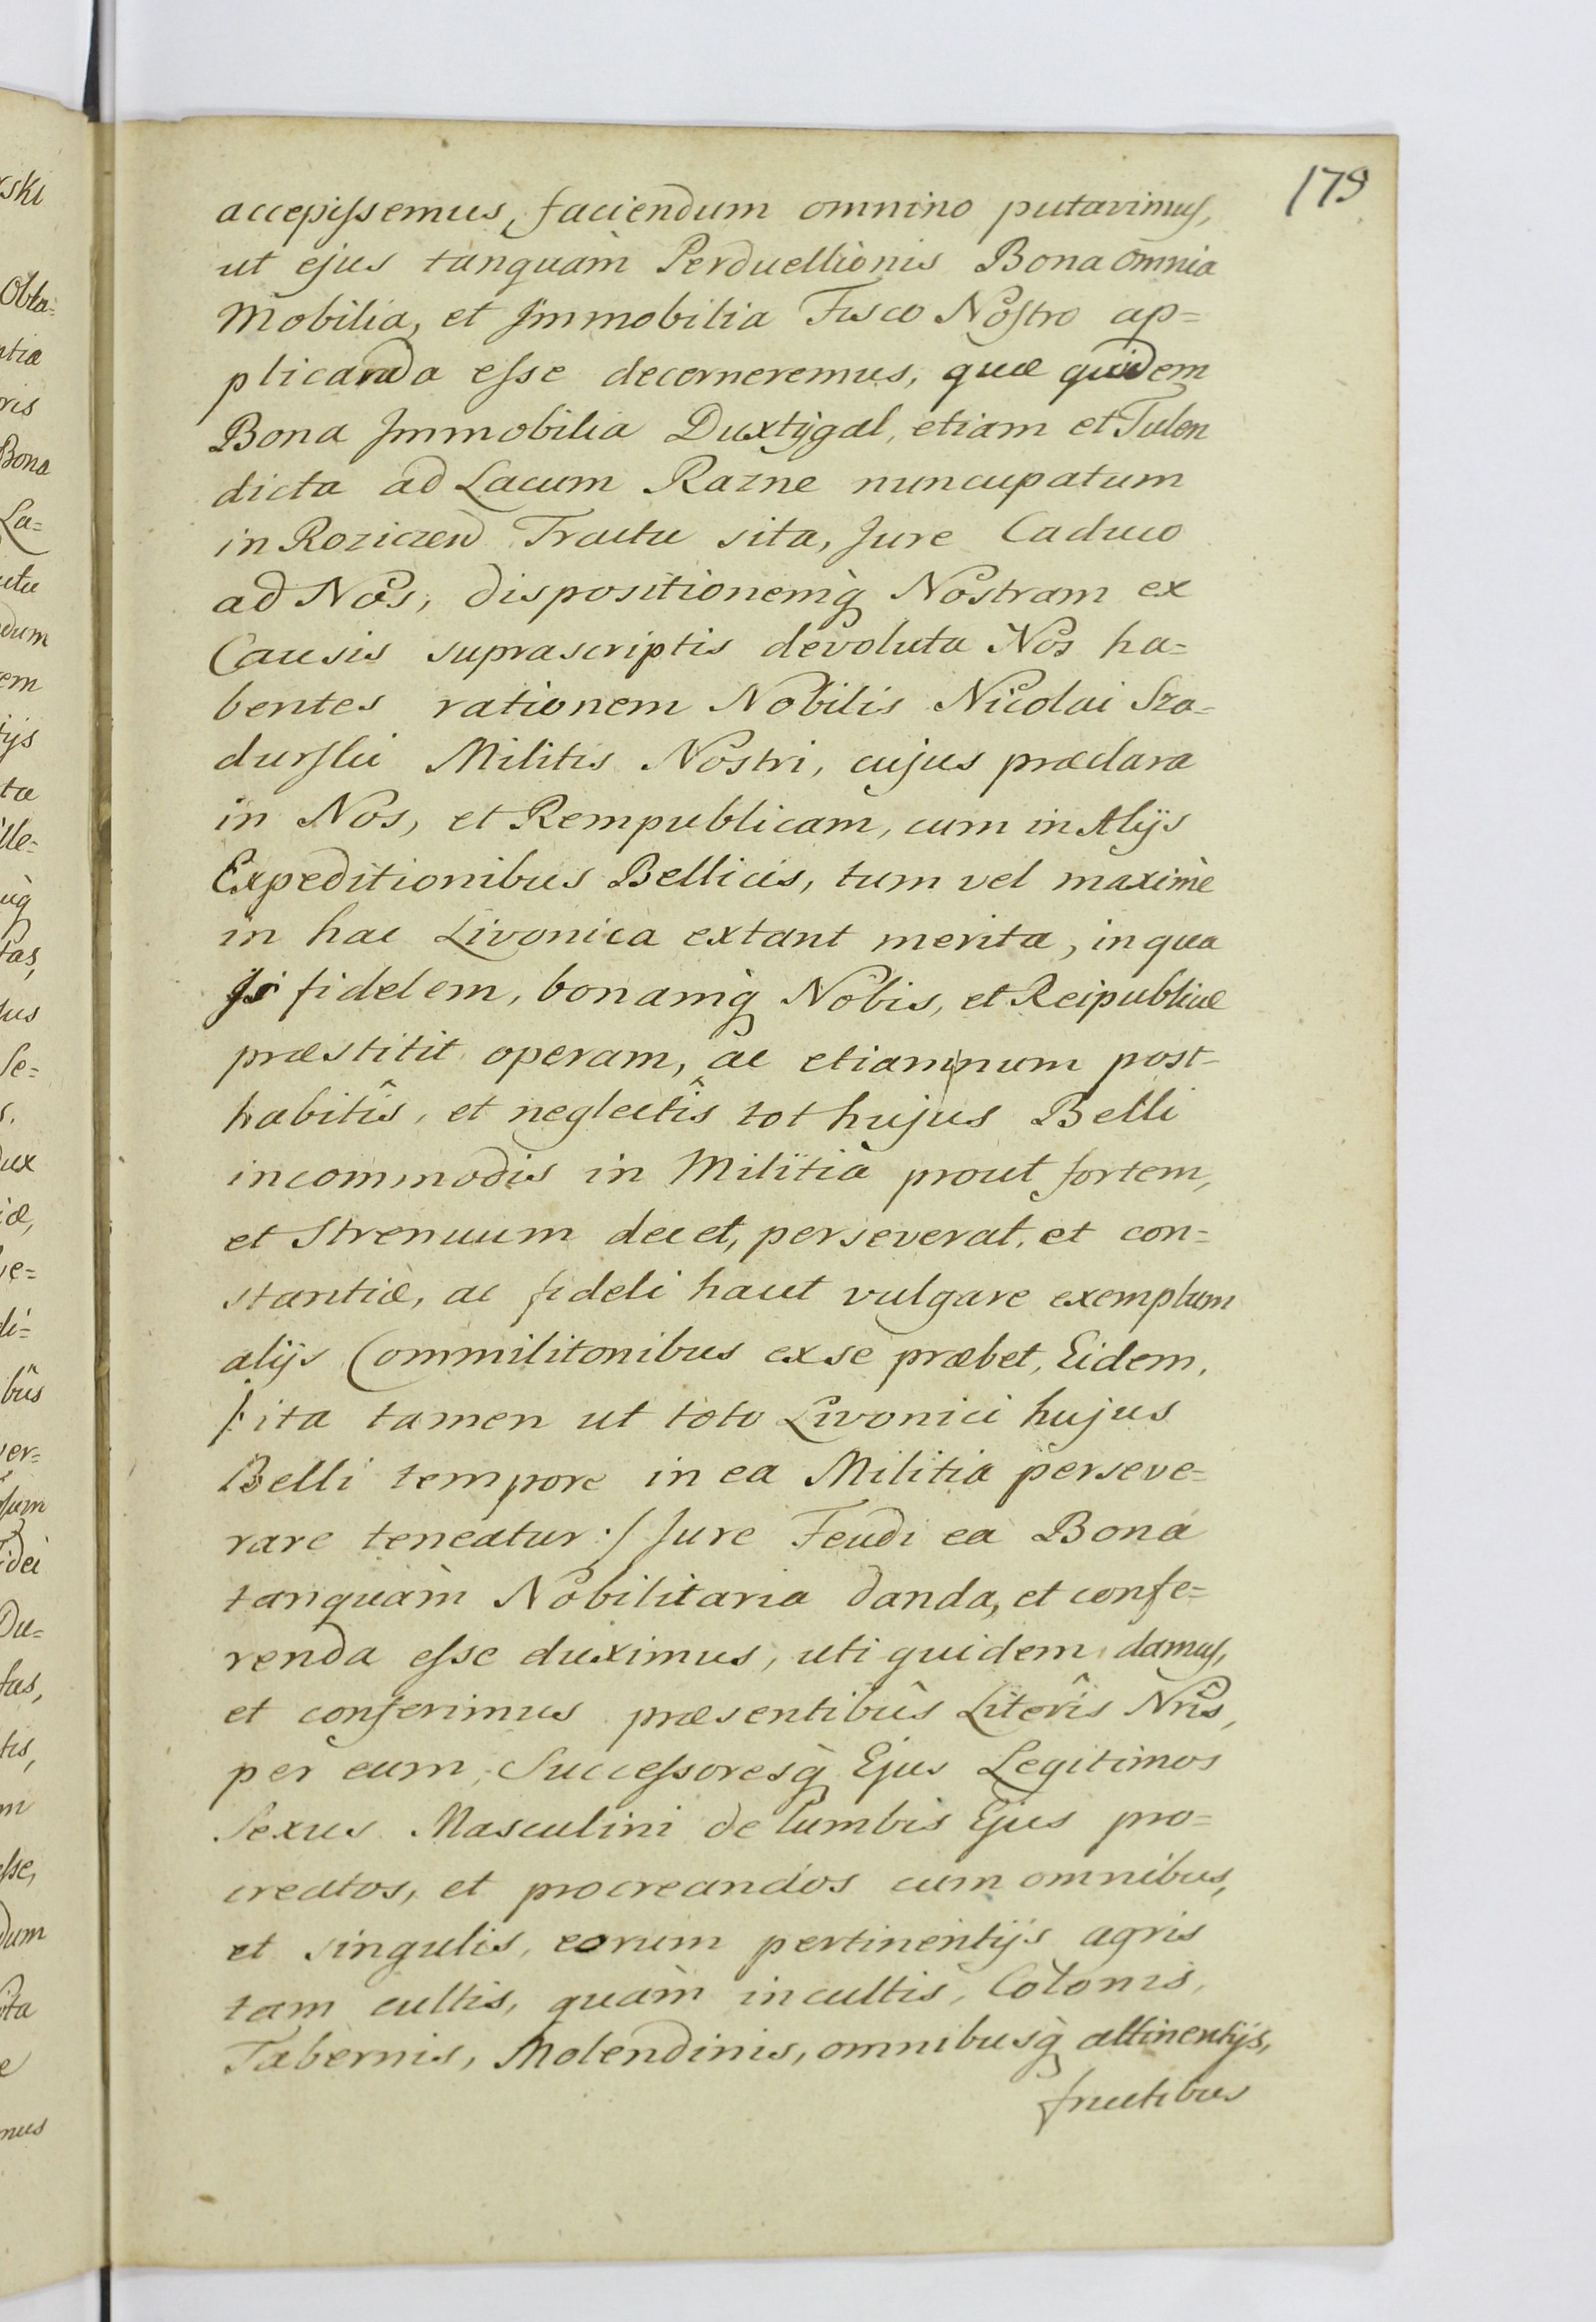 179
accepissemus, faciendum omnino putavimus,
ut ejus tanquàm Perduellionis Bona omnia
Mobilia, et Immobilia Fisco Nostro ap=
plicanda esse decerneremus, quæ quidem
Bona Immobilia Duxtÿgal, etiam et Tulen
dicta ad Lacum Razne nuncupatum
in Roziczen Tractu sita, Jure Caduco
ad Nos, dispositionemq̀ Nostram ex
Causis suprascriptis devoluta Nos ha=
bentes rationem Nobilis Nicolai Sza=
durski Militis Nostri, cujus præclara
in Nos, et Rempublicam, cum in Alijs
Expeditionibus Bellicis, tum vel maximè
in hac Livonica extant merita, in qua
Is fidelem, bonamq̀ Nobis, et Reipublicæ
præstitit operam, ac etiamnum post-
habitîs, et neglectîs tot hujus Belli
incommodis in Militia prout fortem,
et Strenuum decet, perseverat, et con=
stantiæ, ac fidei haut vulgare exemplum
alijs Commilitonibus ex se præbet, Eidem,
/: ita tamen ut toto Livonici hujus
Belli tempore in ea Militia perseve=
rare teneatur :/ Jure Feudi ea Bona
tanquàm Nobilitaria danda, et confe=
renda esse duximus, uti quidem damus,
et conferimus præsentibûs Literîs Nrîs,
per eum, Successoresq̀ Ejus Legitimos
Sexus Masculini de lumbis Ejus pro=
creatos, et procreandos cum omnibus,
et singulis, eorum pertinentijs agris
tam cultis, quàm incultis, Colonis,
Tabernis, Molendinis, omnibusq̀ attinentijs,
fructibus